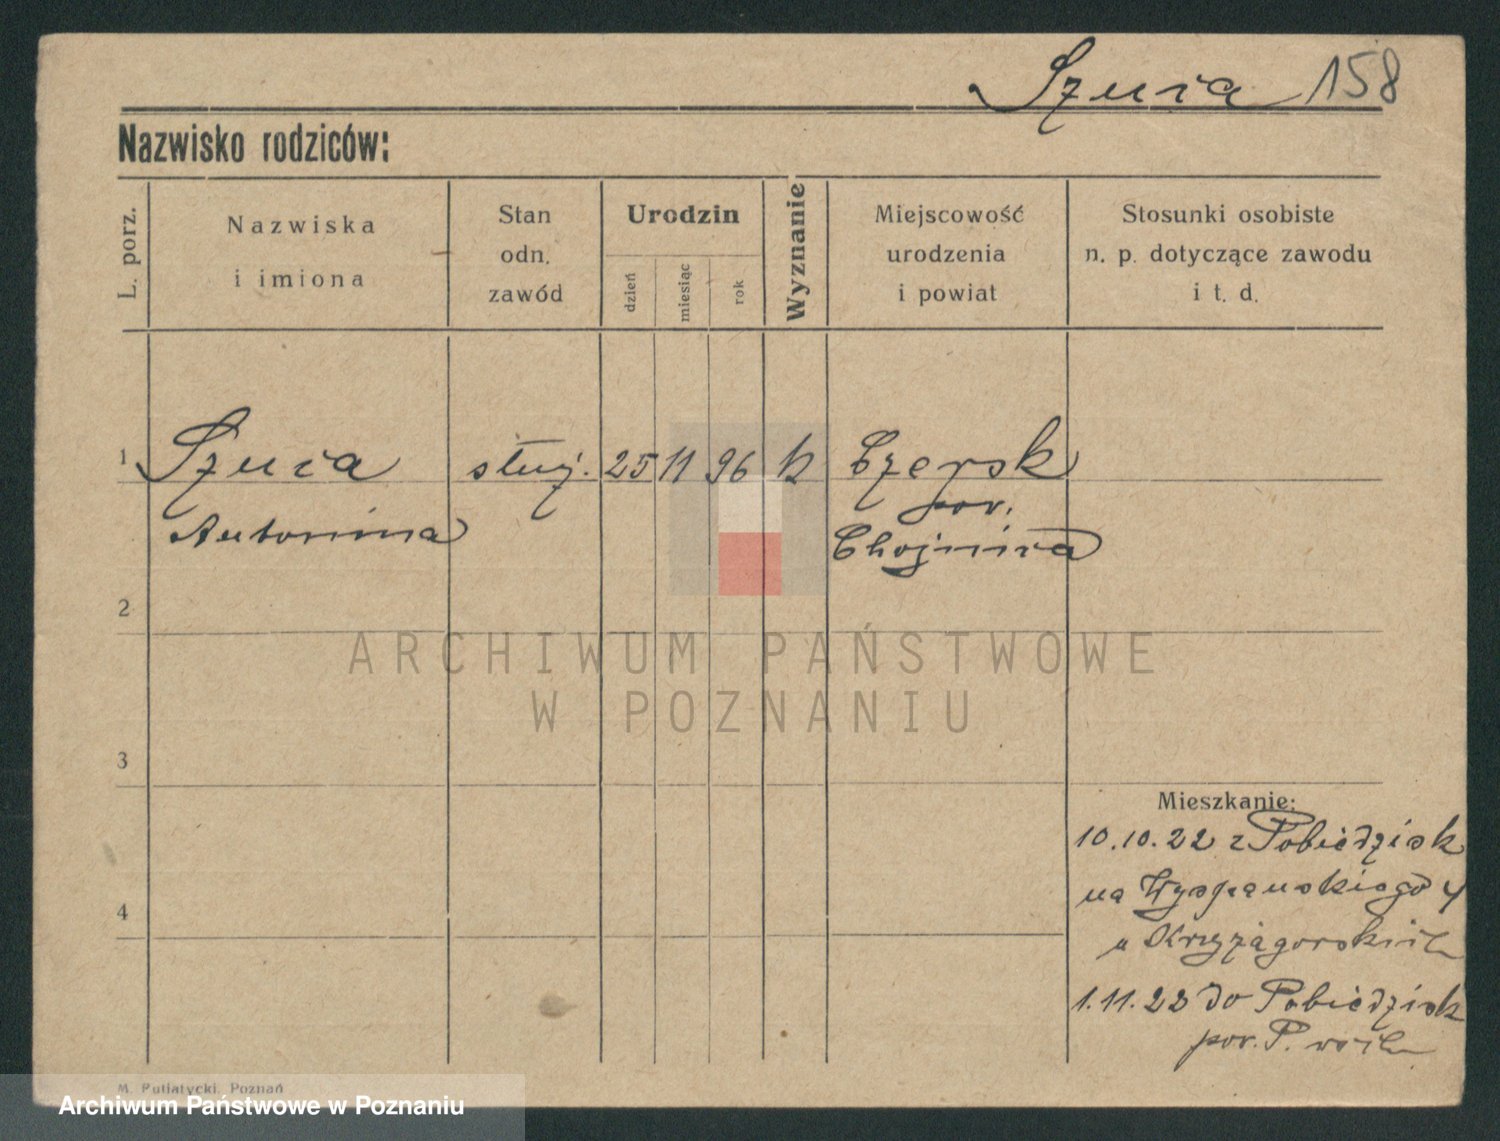 Szuca 158
Nazwisko rodziców:
L. porz.
Nazwiska
i imiona
Stan
odn.
zawód
Urodzin
dzień
miesiąc
rok
Wyznanie
Miejscowość
urodzenia
i powiat
Stosunki osobiste
n. p. dotyczące zawodu
i t. d.
1 Szuca służ. 25 11 96 k Czersk
pow.
Antonina Chojnica
2
3
4
Mieszkanie:
10.10.22 z Pobiedzisk
na Wyspiańskiego
u
1.11.22 do Pobiedzisk
pow. P.
M. Putiatycki, Poznań
ARCHIWUM PAŃSTWOWE
W POZNANIU
Archiwum Państwowe w Poznaniu